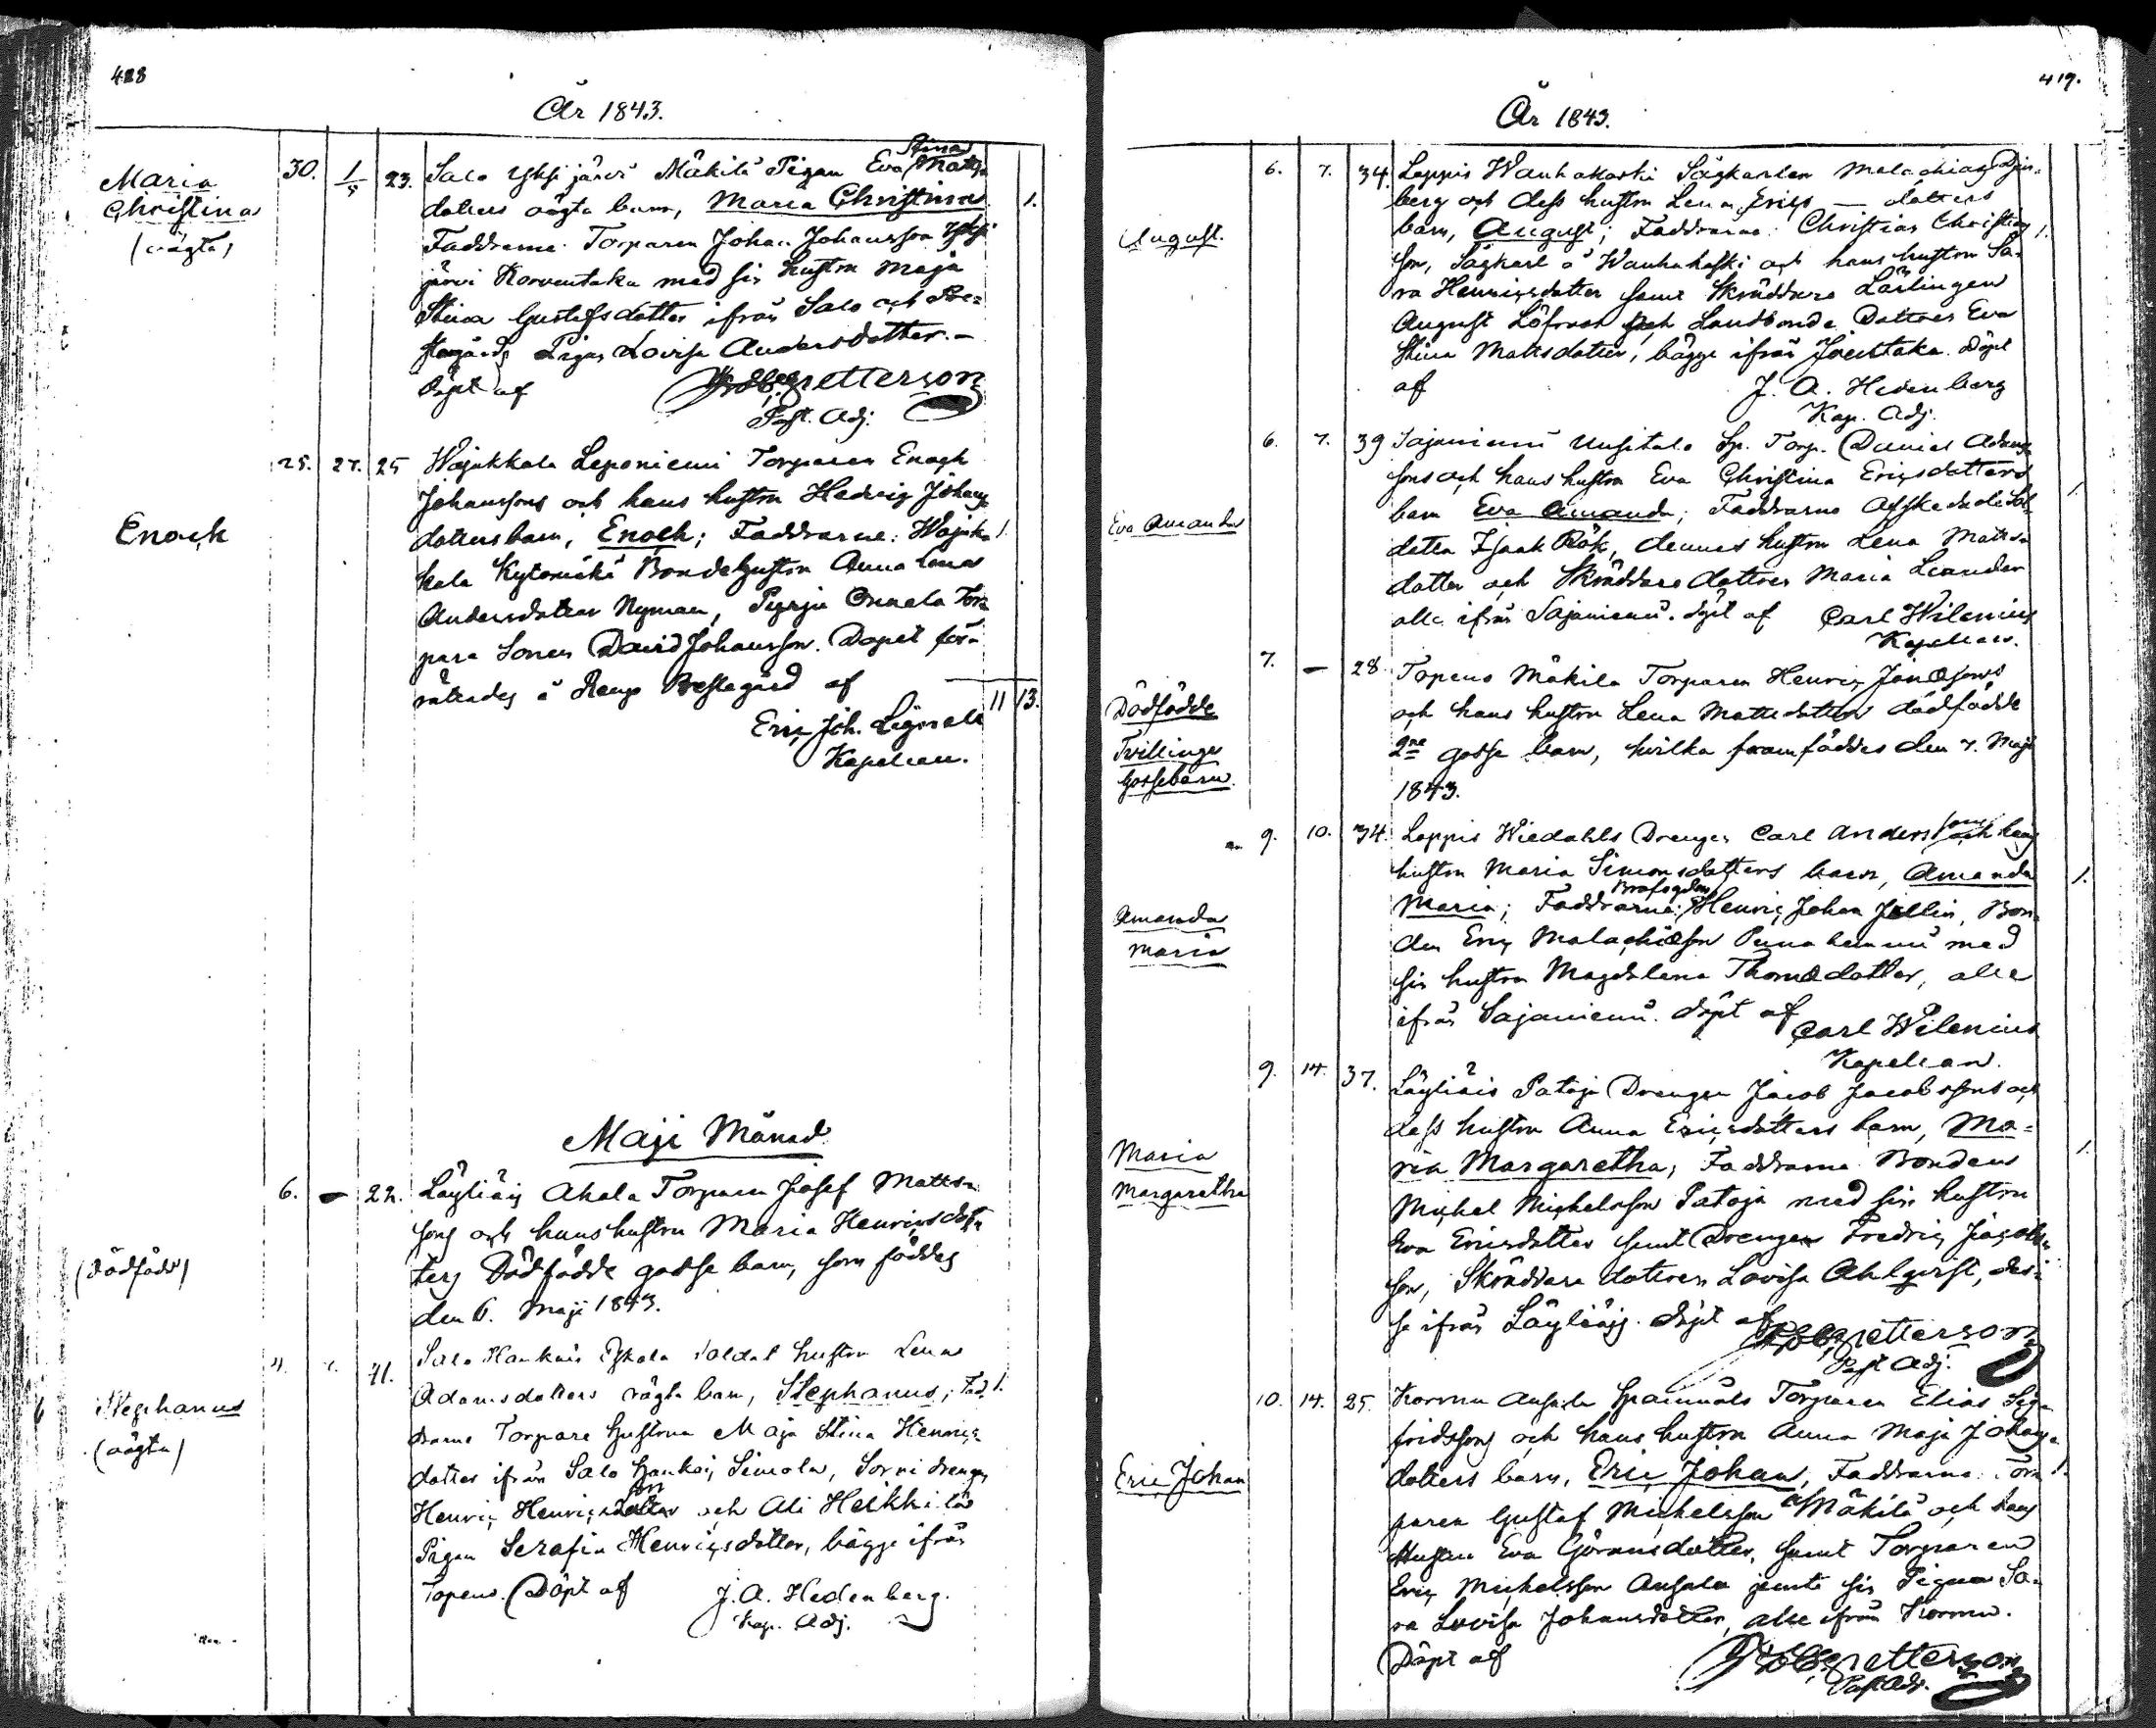 428
År 1843.
Maria
Christina
(oägta)
30. 1/5 23. Salo Yksjärvi Mäkilä Pigan Eva Stina Matts
dotters oägta barn, Maria Christina 1.
Faddrarne: Torparen Johan Johansson Yksj
järvi Korventaka med sin hustru Maja
Stina Gustafsdotter ifrån Salo och Pre=
stegårds Pigan Lovisa Andersdotter.—
Döpt af
Past. Adj.
Enoch
25. 27. 25 Wojakkala Leponiemi Torparen Enoch
Johanssons och hans hustru Hedvig Johans
dotters barn, Enoch; Faddrarne: Wojak= 1
kala Kytömäki Bonde hustru Anna Lena
Andersdotter Nyman, Onnela Tor=
pare Sonen David Johansson. Dopet för=
rättades å Rengo Prestegård af
11 13.
Eric Joh.
Kapellan.
Maji Månad
(Dödfödd)
6. – 22. Läyliäis Ahola Torparen Josef Matts=
sons och hans hustru Maria Henricsdot=
ters Dödfödde gosse barn, som föddes
den 6. Maji 1843.
Stephanus
(oägta)
41. Salo Hankais Soldat hustru Lena
Adamsdotters oägta barn, Stephanus; Fad= 1.
drarne Torpare hustrun Maja Stina Henrics=
dotter ifrån Salo Hankais Simola, Drengen
Henric Henricsson och Ali Heikkilä
Pigan Serafia Henricsdotter, bägge ifrån
Topeno. Döpt af J. A. Hedenberg.
Kap. Adj.
419.
År 1843.
August.
6. 7. 34. Loppis Wanhakoski Sågkarlen Malachias
berg och dess hustru Lena Erics — dotters
barn, August; Faddrarne: Christian Christians 1.
son, Sågkarl å Wanhakoski och hans hustru Sa=
ra Henricsdotter samt Skräddare Lärlingen
August Löfroth och Landbonde Dottren Eva
Stina Mattsdotter, bägge ifrån Joentaka. Döpt
af J. A. Hedenberg
Kap. Adj.
Eva Amanda
6. 7. 39 Sajaniemi Uusitalo Sp. Torp. Daniel Adams
sons och hans hustru Eva Christina Ericsdotters
barn Eva Amanda; Faddrarne Afskedade Sol= 1.
daten Isaak Rök, dennes hustru Lena Matts
dotter och Skräddare dottren Maria Leander
alla ifrån Sajaniemi. Döpt af Carl Wilenius
Kapellan.
Dödfödde
Tvillinge
Gossebarn.
7. – 28. Topeno Mäkilä Torparen Henric Jonæsons
och hans hustru Lena Mattsdotters dödfödde
2ne gosse barn, hvilka framföddes den 7. Maji
1843.
Amanda
Maria
9. 10. 34. Loppis Wiedahls Drengen Carl Anderssons och hans
hustru Maria Simonsdotters barn, Amanda 1.
Maria; Faddrarne: Brofogden Henric Johan Jellin, Bon=
den Eric Malachiæson med
sin hustru Magdalena Thomædotter, alla
ifrån Sajaniemi. Döpt af Carl Wilenius
Kapellan.
Maria
Margaretha
9. 14. 37. Läyliäis Pataja Drengen Jacob Jacobssons och
dess hustru Anna Ericsdotters barn, Ma= 1.
ria Margaretha; Faddrarne Bonden
Michel Michelsson Pataja med sin hustru
Eva Ericsdotter samt Drengen Fredric Jacobs=
son, Skräddare dottren Lovisa Ahlqvist, des=
se ifrån Läyliäis. Döpt af
Past. Adj.
Eric Johan
10. 14. 25. Kormu Ansala Torparen Elias Sig=
fridssons och hans hustru Anna Maja Johans=
dotters barn, Eric Johan, Faddrarne: Tor= 1.
paren Gustaf Michelsson Mäkilä och hans
Hustru Eva Göransdotter, samt Torparen
Eric Michelsson Ansala jemte sin Pigan Sa=
ra Lovisa Johansdotter, alla ifrån Kormu.
Döpt af
Past. Adj.